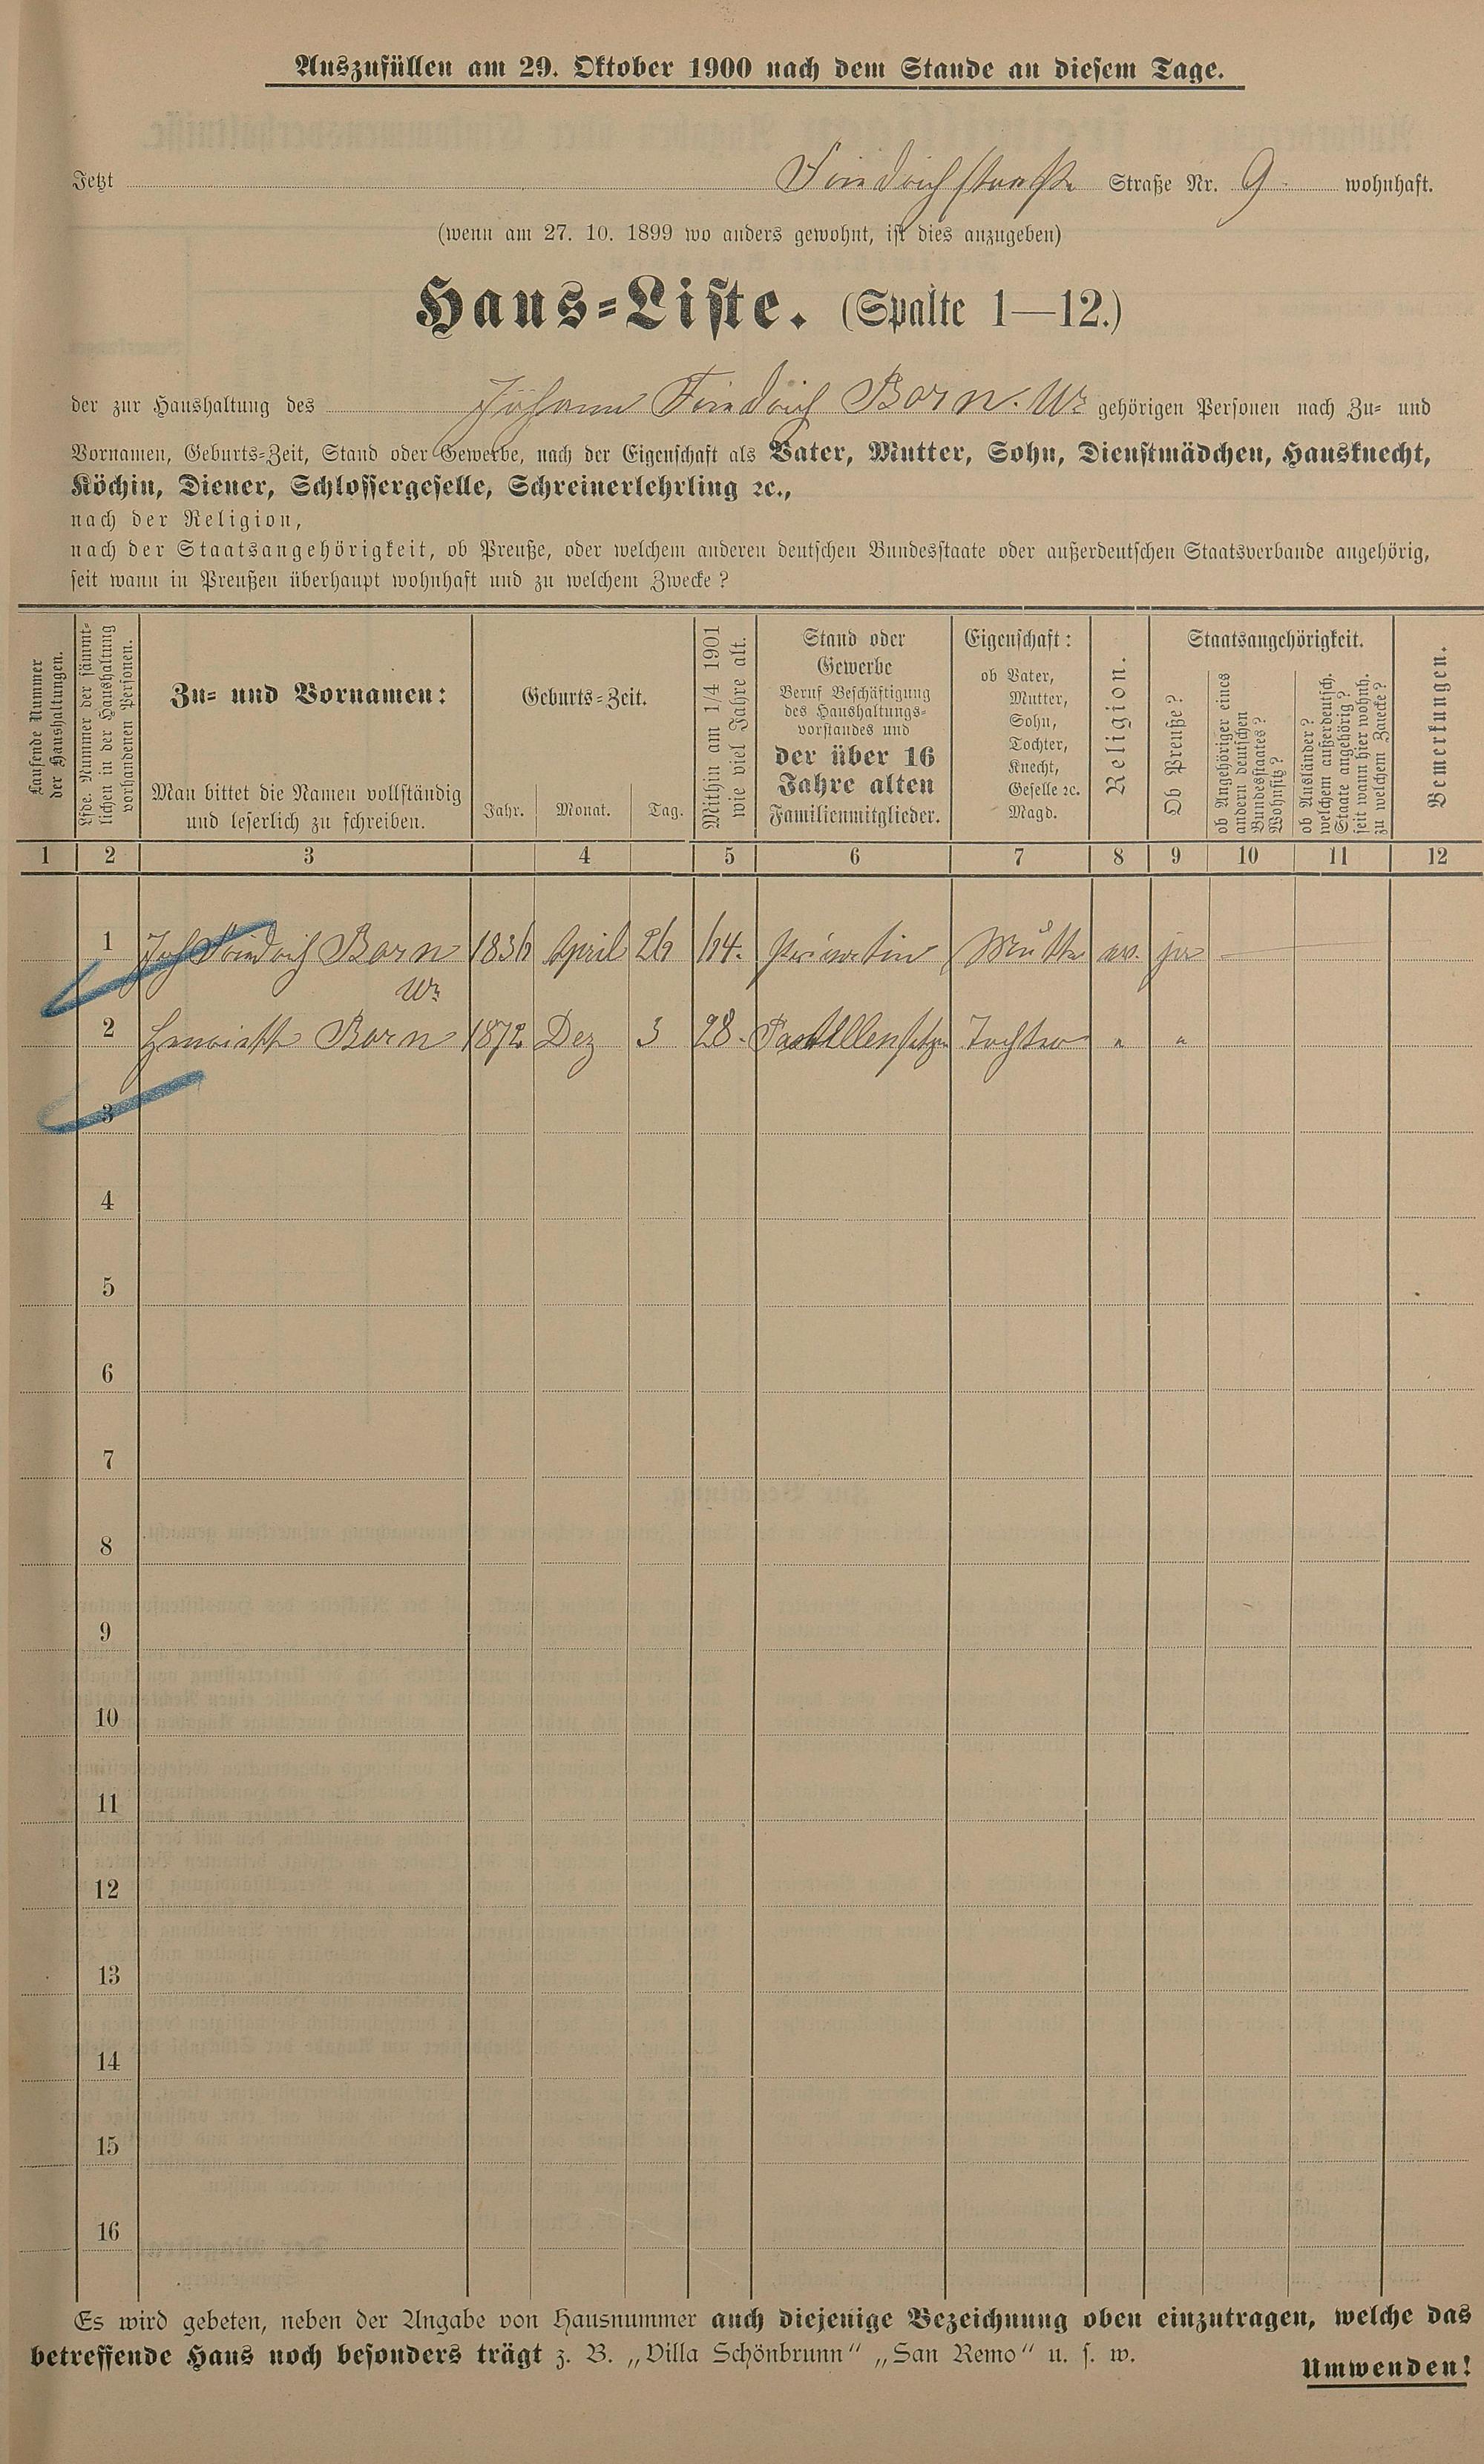 Auszufüllen am 29. Oktober 1900 nach dem Stande an diesem Tage.
Jetzt Friedrichstraße Straße Nr. 9 wohnhaft.
(wenn am 27. 10. 1899 wo anders gewohnt, ist dies anzugeben)
Haus-Liste. (Spalte 1—12.)
der zur Haushaltung des Johann Friedrich Born. Ww gehörigen Personen nach Zu- und
Vornamen, Geburts-Zeit, Stand oder Gewerbe, nach der Eigenschaft als Vater, Mutter, Sohn, Dienstmädchen, Hausknecht,
Köchin, Diener, Schlossergeselle, Schreinerlehrling ꝛc.,
nach der Religion,
nach der Staatsangehörigkeit, ob Preuße, oder welchem anderen deutschen Bundesstaate oder außerdeutschen Staatsverbande angehörig,
seit wann in Preußen überhaupt wohnhaft und zu welchem Zwecke?
Laufende Nummer
der Haushaltungen.
Lfde. Nummer der sämmt-
lichen in der Haushaltung
vorhandenen Personen.
Zu- und Vornamen:
Man bittet die Namen vollständig
und leserlich zu schreiben.
Geburts-Zeit.
Jahr. Monat. Tag.
Mithin am 1/4 1901
wie viel Jahre alt.
Stand oder
Gewerbe
Beruf Beschäftigung
des Haushaltungs-
vorstandes und
der über 16
Jahre alten
Familienmitglieder.
Eigenschaft:
ob Vater,
Mutter,
Sohn,
Tochter,
Knecht,
Geselle ꝛc.
Magd.
Religion.
Staatsangehörigkeit.
Ob Preuße?
ob Angehöriger eines
andern deutschen
Bundesstaates?
Wohnsitz?
ob Ausländer?
welchem außerdeutsch.
Staate angehörig?
seit wann hier wohnh.
zu welchem Zwecke?
Bemerkungen.
1 2 3 4 5 6 7 8 9 10 11 12
1 Joh Friedrich Born 1836 April 26 64. Privatin Mutter ev. ja
Ww
2 Henriette Born 1872 Dez 3 28. Tochter " "
3
4
5
6
7
8
9
10
11
12
13
14
15
16
Es wird gebeten, neben der Angabe von Hausnummer auch diejenige Bezeichnung oben einzutragen, welche das
betreffende Haus noch besonders trägt z. B. „Villa Schönbrunn“ „San Remo“ u. s. w.
Umwenden!